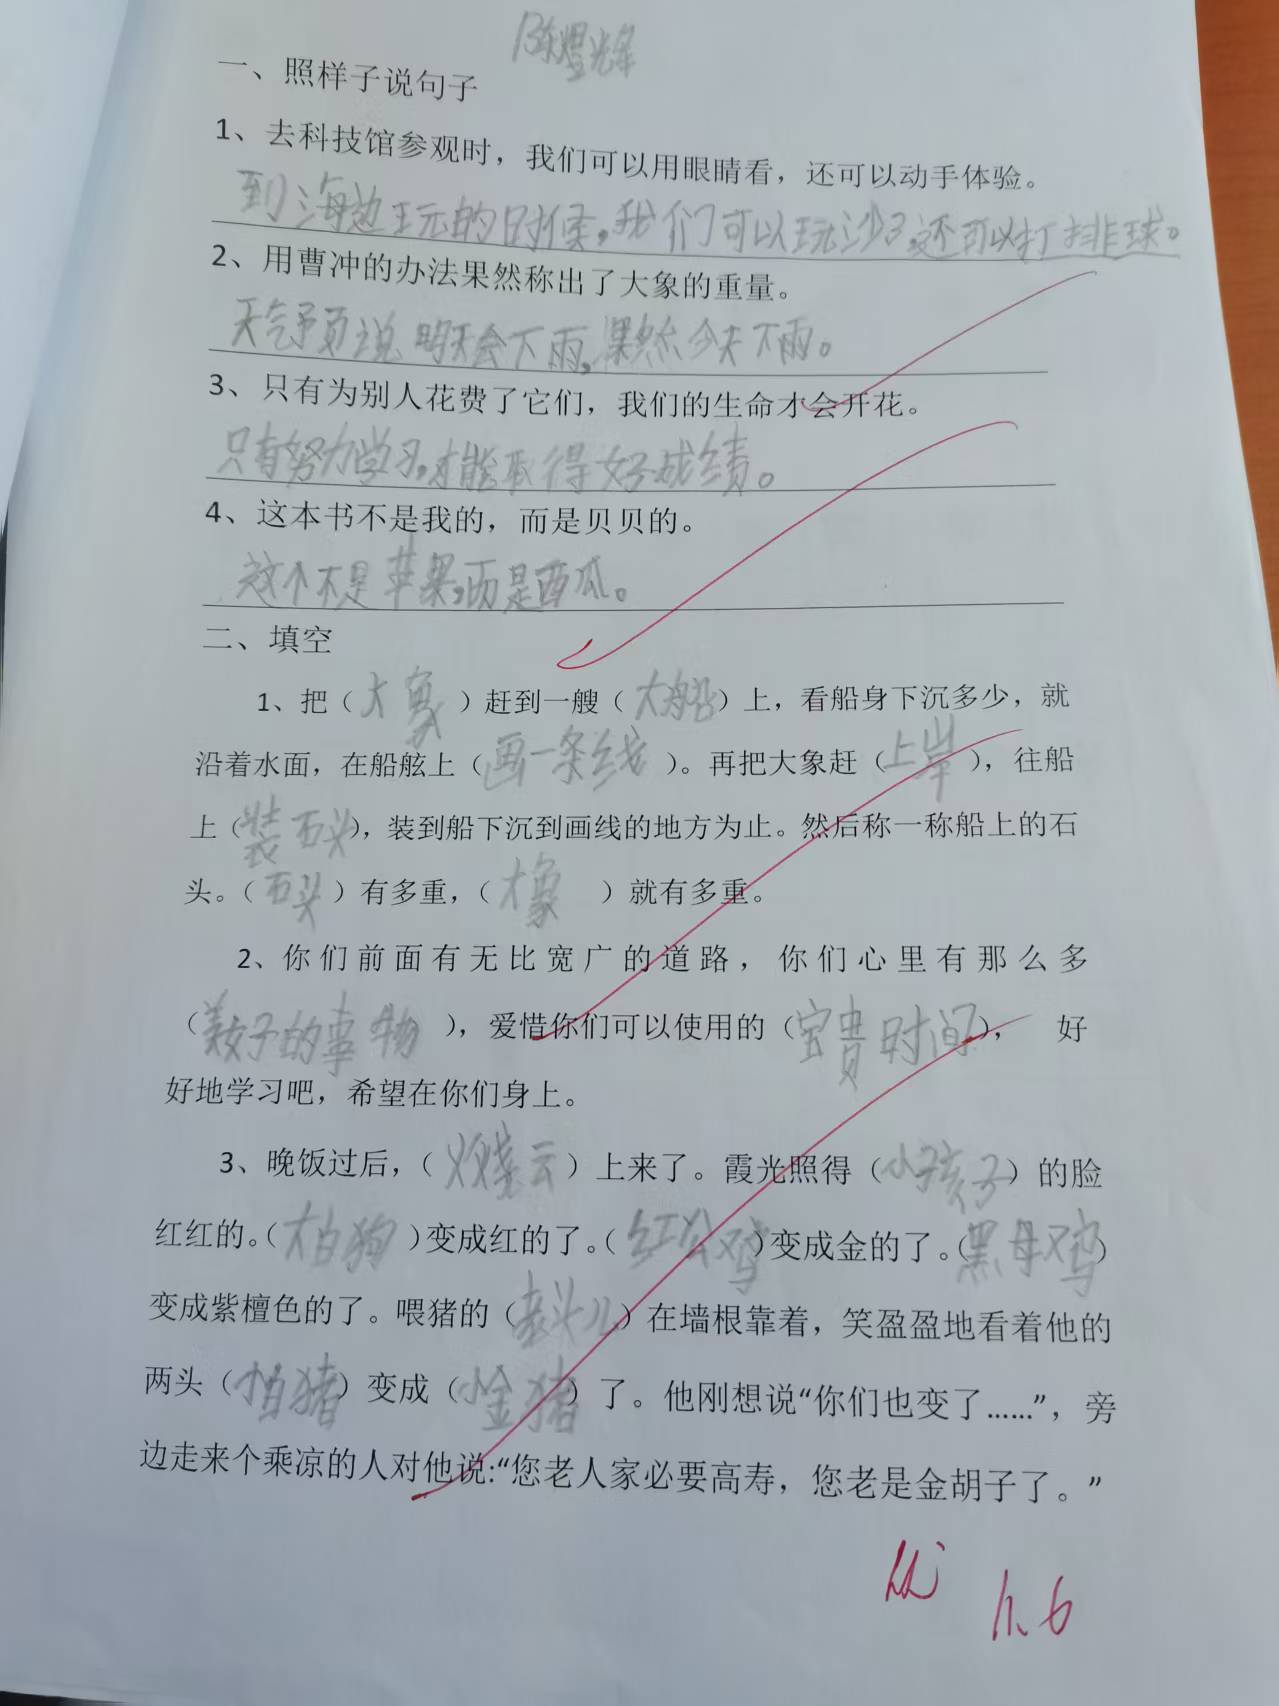 陈煜烽
一、照样子说句子
1、去科技馆参观时，我们可以用眼睛看，还可以动手体验。
到海边玩的时候，我们可以玩沙子，还可以打排球。
2、用曹冲的办法果然称出了大象的重量。
天气予页说明天会下雨，果然今天下雨。
3、只有为别人花费了它们，我们的生命才会开花。
只有努力学习，才能取得好成绩。
4、这本书不是我的，而是贝贝的。
这个不是苹果，而是西瓜。
二、填空
1、把（大象）赶到一艘（大船）上，看船身下沉多少，就
沿着水面，在船舷上（画一条线）。再把大象赶（上岸），往船
上（装石头），装到船下沉到画线的地方为止。然后称一称船上的石
头。（石头）有多重，（大象）就有多重。
2、你们前面有无比宽广的道路，你们心里有那么多
（美好的事物），爱惜你们可以使用的（宝贵时间），好
好地学习吧，希望在你们身上。
3、晚饭过后，（火烧云）上来了。霞光照得（小孩子）的脸
红红的。（大白狗）变成红的了。（红公鸡）变成金的了。（黑母鸡）
变成紫檀色的了。喂猪的（老头儿）在墙根靠着，笑盈盈地看着他的
两头（小白猪）变成（小金猪）了。他刚想说“你们也变了……”，旁
边走来个乘凉的人对他说：“您老人家必要高寿，您老是金胡子了。”
优
11.6